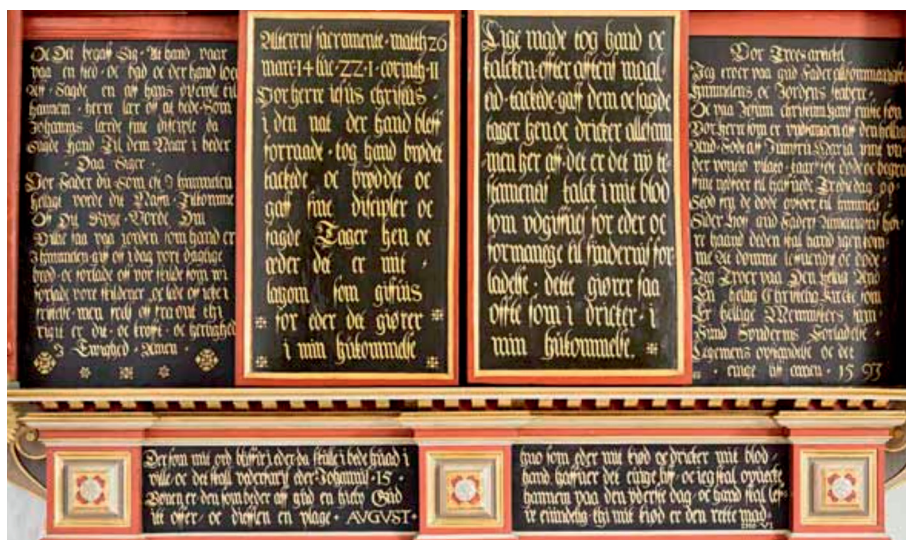 Oc Det begaff Sig At hand vaar
paa en sted oc bad oc der hand loed
Aff Sagde en aff hans disciple til
hannem herre lær os at bede Som
Johannis lærde sine disciple da
Sagde hand Til dem Naar i beder
Daa Siger
Vor Fader du Som est I himmelen
helligt vorde dit Naffn Tilkomme
Dit Rige Vorde Din
Vilie saa paa jorden som hand er
I himmelen giff os i dag vort daglige
brød oc forlad os vor skyld som wi
forlade vore skyldener oc led os icke i
fristelse men frels os fra ont thi
riget er dit oc krafft oc herlighed
I Ewighed Amen
Alterens sacramente matth 26
marc 14 luc 22 1 corinth 11
Vor herre iesus christus
i den nat der hand bleff
forraade tog hand brødet
tackede oc brøddet oc
gaff sine discipler oc
sagde Tager hen oc
æder det er mit
legom som giffus
for eder det giører
i min hukommelse
Lige maade tog hand oc
kalcken effter afftens maal
tid tackede gaff dem oc sagde
tager hen oc dricker allesam
men her aff det er det ny te
stamentis kalck i mit blod
som vdgiffues for eder oc
for mange til syndernis for
ladelse dette giører saa
offte som i dricker i
min hukommelse
Vor Troes artickel
Jeg troer paa gud Fader almmegtigste
himmelens oc Jordens skabere
Oc paa Jesum christum hans eniste søn
Vor herre som er vndfangen aff den hellig
And Fød aff Jumfru Maria pint vn
der poncio pilato døde oc begraff
til helffuede Trede dag op
stod fra de døde opfoer til himmels
Sider hos gud Faders Almectigste høy
re haand deden skal hand igen kom
me At dømme leffuende oc døde
Jeg Troer paa Den hellig And
En helig Christelig kircke som
Er hellige Menniskers sam
fund Syndernis Forladelse
Legemens opstandelse oc det
euige liff amen 1593
Der som mit ord bliffuer i eder da skulle i bede huad i
ville oc det skall vederfaris eder Johannis 15
Bønen er den som beder aff gud en hielp Gud
itt offer oc diefflen en plage AVGVST
huo som eder mit kiød oc dricker mit blod
hand haffuer det euige liff oc ieg skal opuecke
hannem paa den yderste dag oc hand skal leff
ue euindelig thi mit kiød er den rette mad
Ioh VI